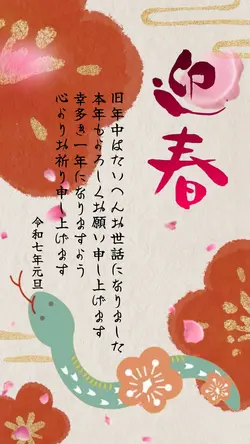 迎春
旧年中はたいへんお世話になりました
本年もよろしくお願い申し上げます
幸多き一年になりますよう
心よりお祈り申し上げます
令和七年元旦